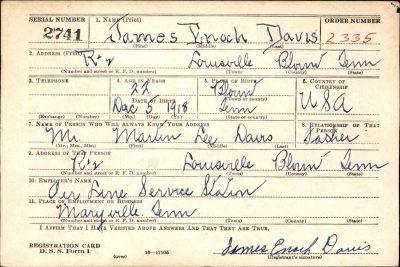 SERIAL NUMBER 1. NAME (Print) ORDER NUMBER
2741 James Enoch Davis 2335
(First) (Middle) (Last)
2. ADDRESS (Print)
R#2 Louisville Blount Tenn
(Number and street or R. F. D. number) (Town) (County) (State)
3. TELEPHONE 4. AGE IN YEARS 5. PLACE OF BIRTH 6. COUNTRY OF CITIZENSHIP
22 Blount
DATE OF BIRTH (Town or county) USA
Dec 5 1918 Tenn
(Exchange) (Number) (Mo.) (Day) (Yr.) (State or country)
7. NAME OF PERSON WHO WILL ALWAYS KNOW YOUR ADDRESS 8. RELATIONSHIP OF THAT PERSON
Mr. Martin Lee Davis Father
(Mr., Mrs., Miss) (First) (Middle) (Last)
9. ADDRESS OF THAT PERSON
R#2 Louisville Blount Tenn
(Number and street or R. F. D. number) (Town) (County) (State)
10. EMPLOYER'S NAME
Air Line Service Station
11. PLACE OF EMPLOYMENT OR BUSINESS
Maryville Tenn
(Number and street or R. F. D. number) (Town) (County) (State)
I AFFIRM THAT I HAVE VERIFIED ABOVE ANSWERS AND THAT THEY ARE TRUE.
REGISTRATION CARD
D. S. S. Form 1 (over) 16—17105 James Enoch Davis
(Registrant's signature)